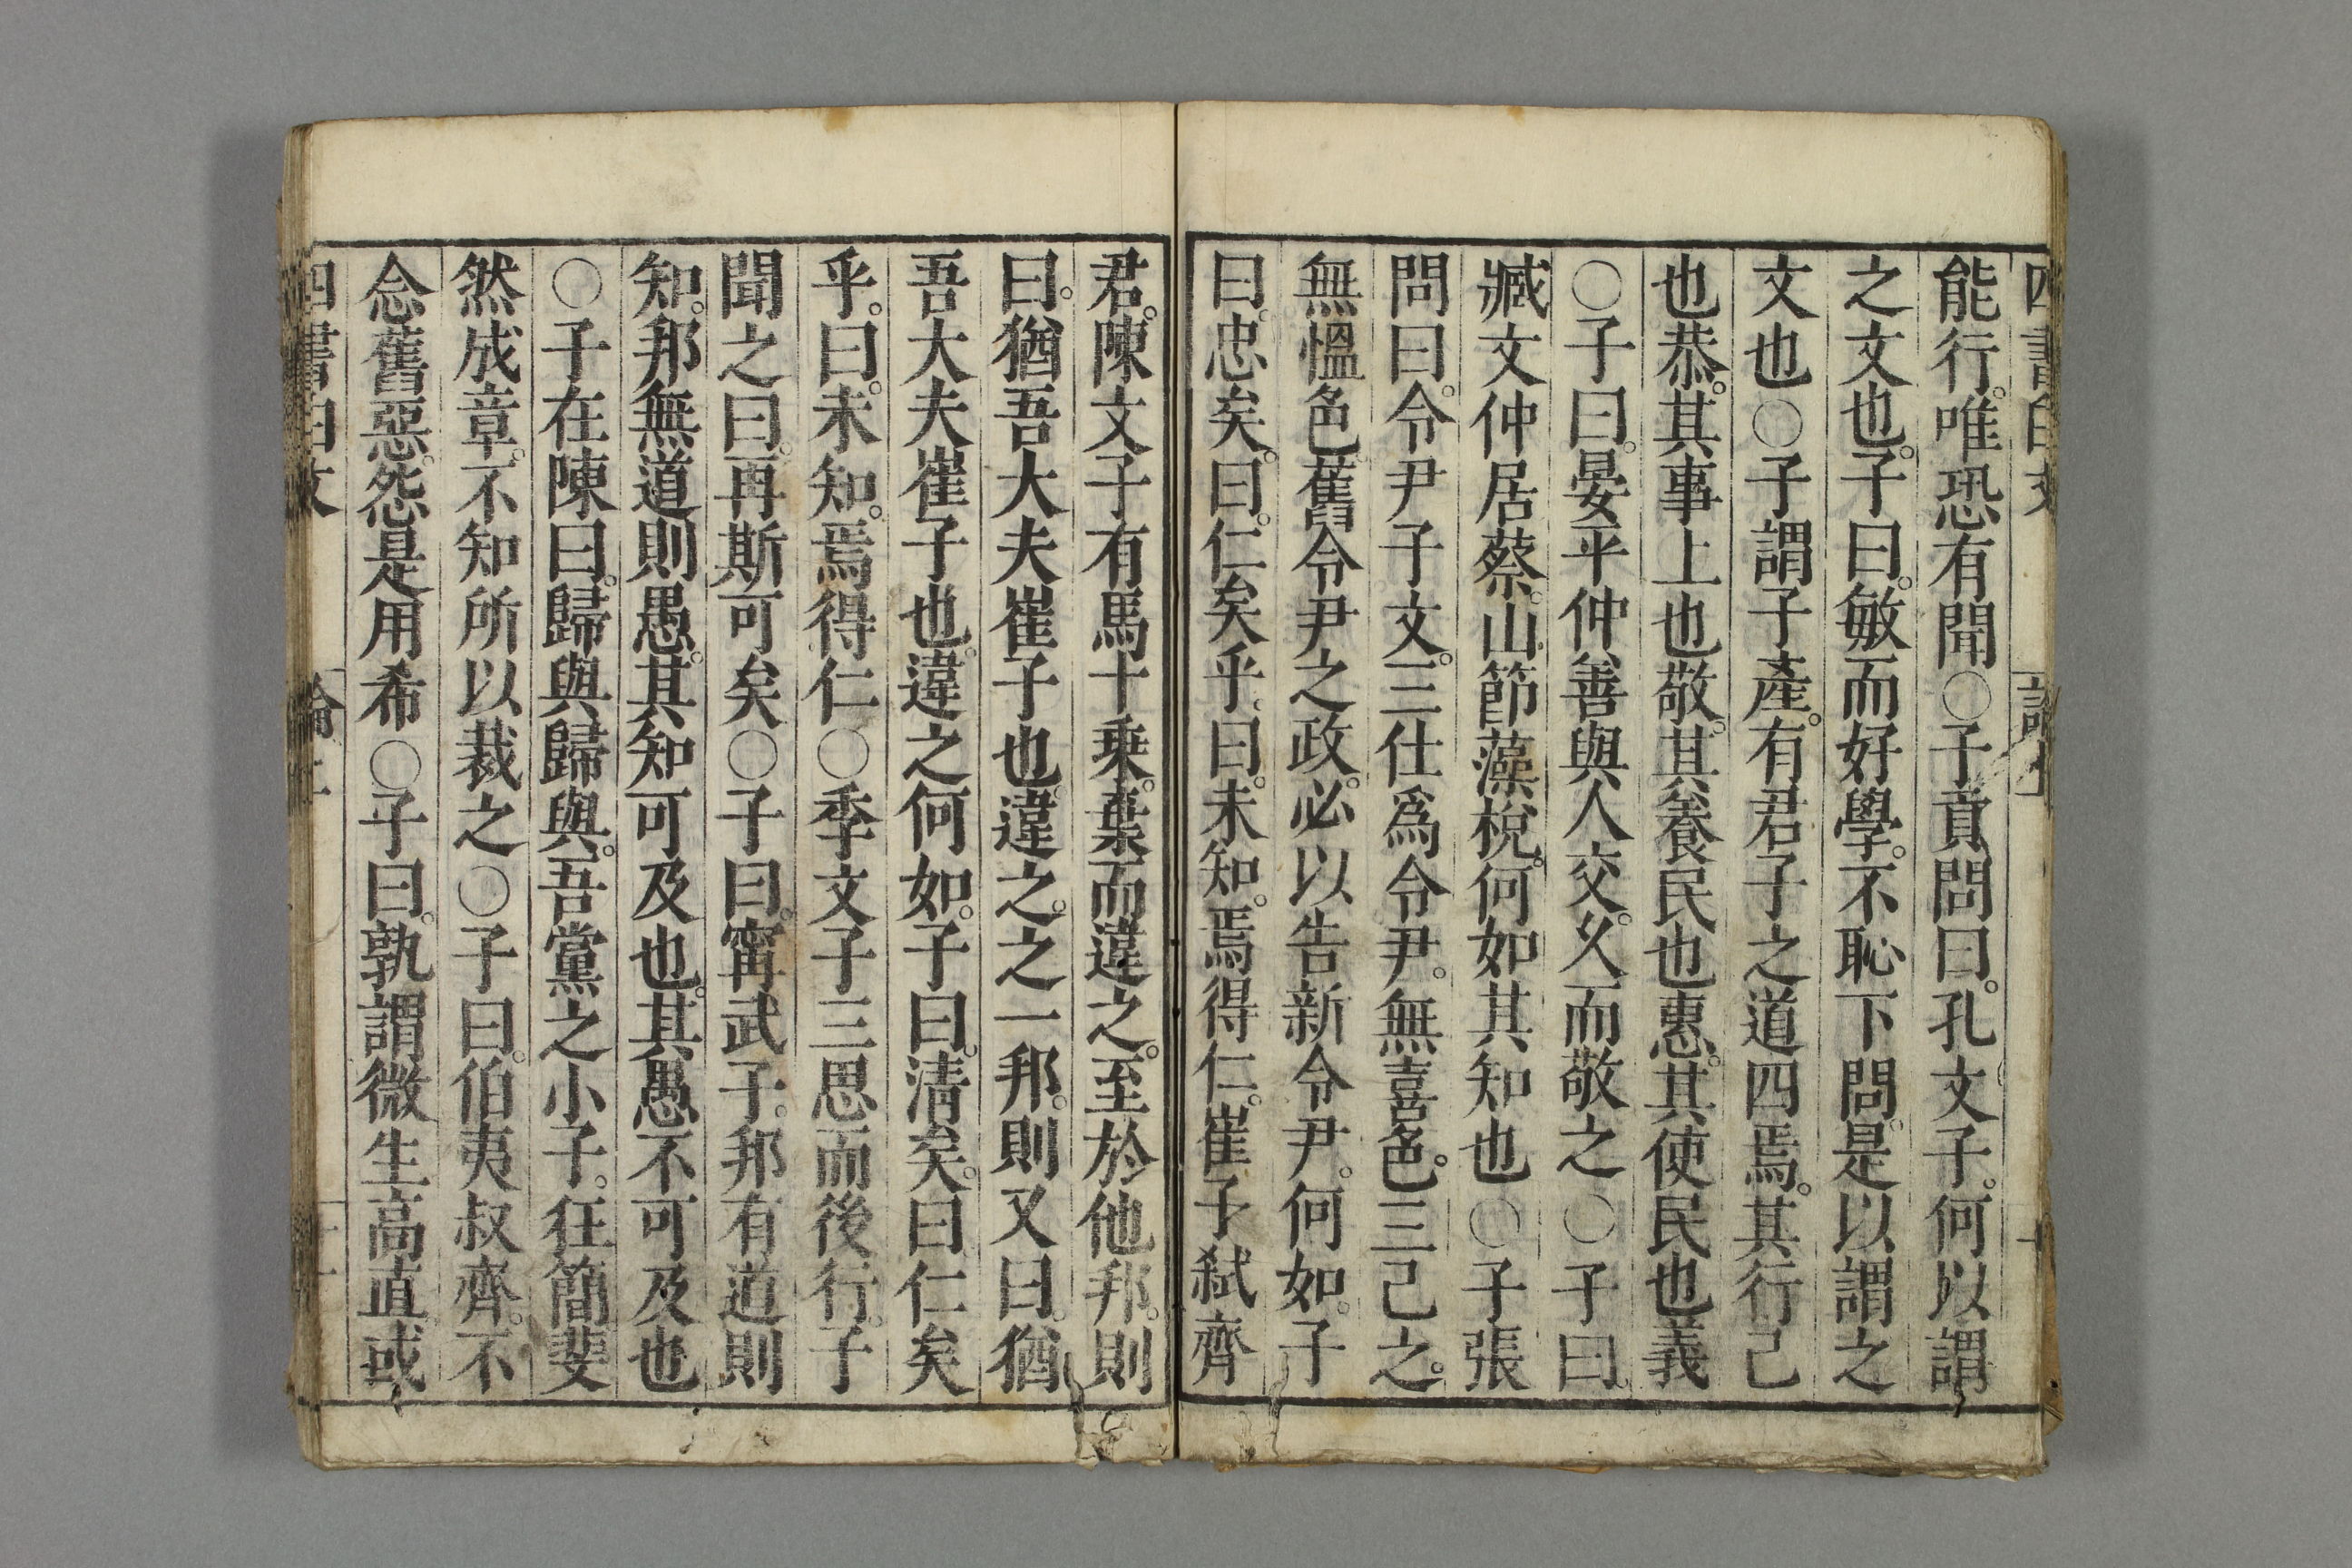 能行。唯恐有聞○子貢問曰。孔文子。何以謂
之文也。子曰。敏而好學。不恥下問。是以謂之
文也○子謂子產。有君子之道四焉。其行己
也恭。其事上也敬。其養民也惠。其使民也義
○子曰。晏平仲善與人交。久而敬之○子曰。
臧文仲居蔡。山節藻梲。何如其知也○子張
問曰。令尹子文。三仕爲令尹。無喜色。三已之。
無慍色。舊令尹之政。必以告新令尹。何如。子
曰。忠矣。曰。仁矣乎。曰。未知。焉得仁。崔子弑齊
君。陳文子有馬十乘。棄而違之。至於他邦。則
曰。猶吾大夫崔子也。違之。之一邦。則又曰。猶
吾大夫崔子也。違之。何如。子曰。淸矣。曰仁矣
乎。曰。未知。焉得仁○季文子三思而後行。子
聞之曰。再斯可矣○子曰。甯武子。邦有道則
知。邦無道則愚。其知可及也。其愚不可及也
○子在陳曰。歸與歸與。吾黨之小子。狂簡斐
然成章。不知所以裁之○子曰。伯夷叔齊。不
念舊惡。怨是用希○子曰。孰謂微生高直。或
四書白文